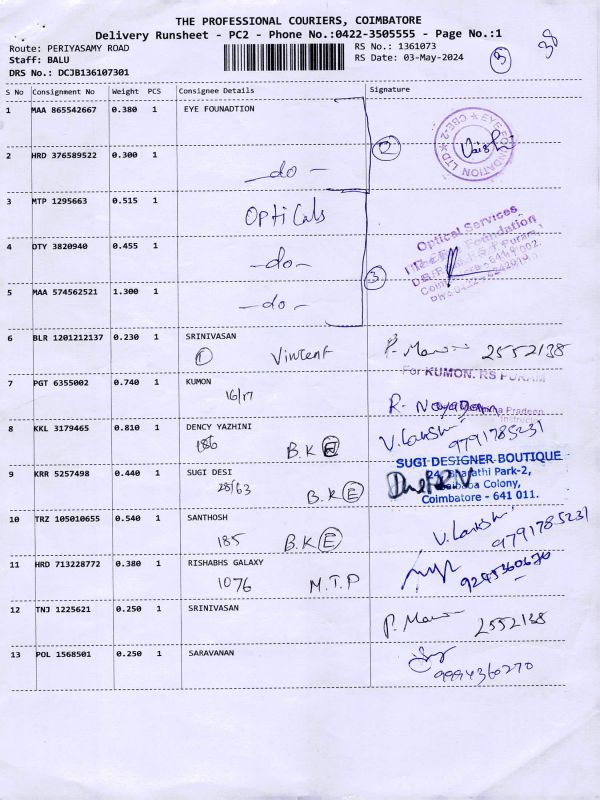 THE PROFESSIONAL COURIERS, COIMBATORE
Delivery Runsheet - PC2 - Phone No.:0422-3505555 - Page No.:1
Route: PERIYASAMY ROAD RS No.: 1361073
Staff: BALU RS Date: 03-May-2024
DRS No.: DCJB136107301
3 38
S No Consignment No Weight PCS Consignee Details Signature
1 MAA 865542667 0.380 1 EYE FOUNADTION
2 HRD 376589522 0.300 1
-do- 2
EYE FOUNDATION LTD CBE-2
3 MTP 1295663 0.515 1 Opticals
Optical Services
4 DTY 3820940 0.455 1 -do-
5 MAA 574562521 1.300 1 -do- 3
6 BLR 1201212137 0.230 1 SRINIVASAN
1 Vincent 2552138
For KUMON, RS PURAM
7 PGT 6355002 0.740 1 KUMON
16/17
8 KKL 3179465 0.810 1 DENCY YAZHINI
186 B.K E V. Lakshi 9791785231
9 KRR 5257498 0.440 1 SUGI DESI
28/63 B.K E
SUGI DESIGNER BOUTIQUE
24, Bharathi Park-2,
Saibaba Colony,
Coimbatore - 641 011.
10 TRZ 105010655 0.540 1 SANTHOSH
185 B.K E V. Lakshi 9791785231
11 HRD 713228772 0.380 1 RISHABHS GALAXY
1076 M.T.P
12 TNJ 1225621 0.250 1 SRINIVASAN
2552138
13 POL 1568501 0.250 1 SARAVANAN
9994360270